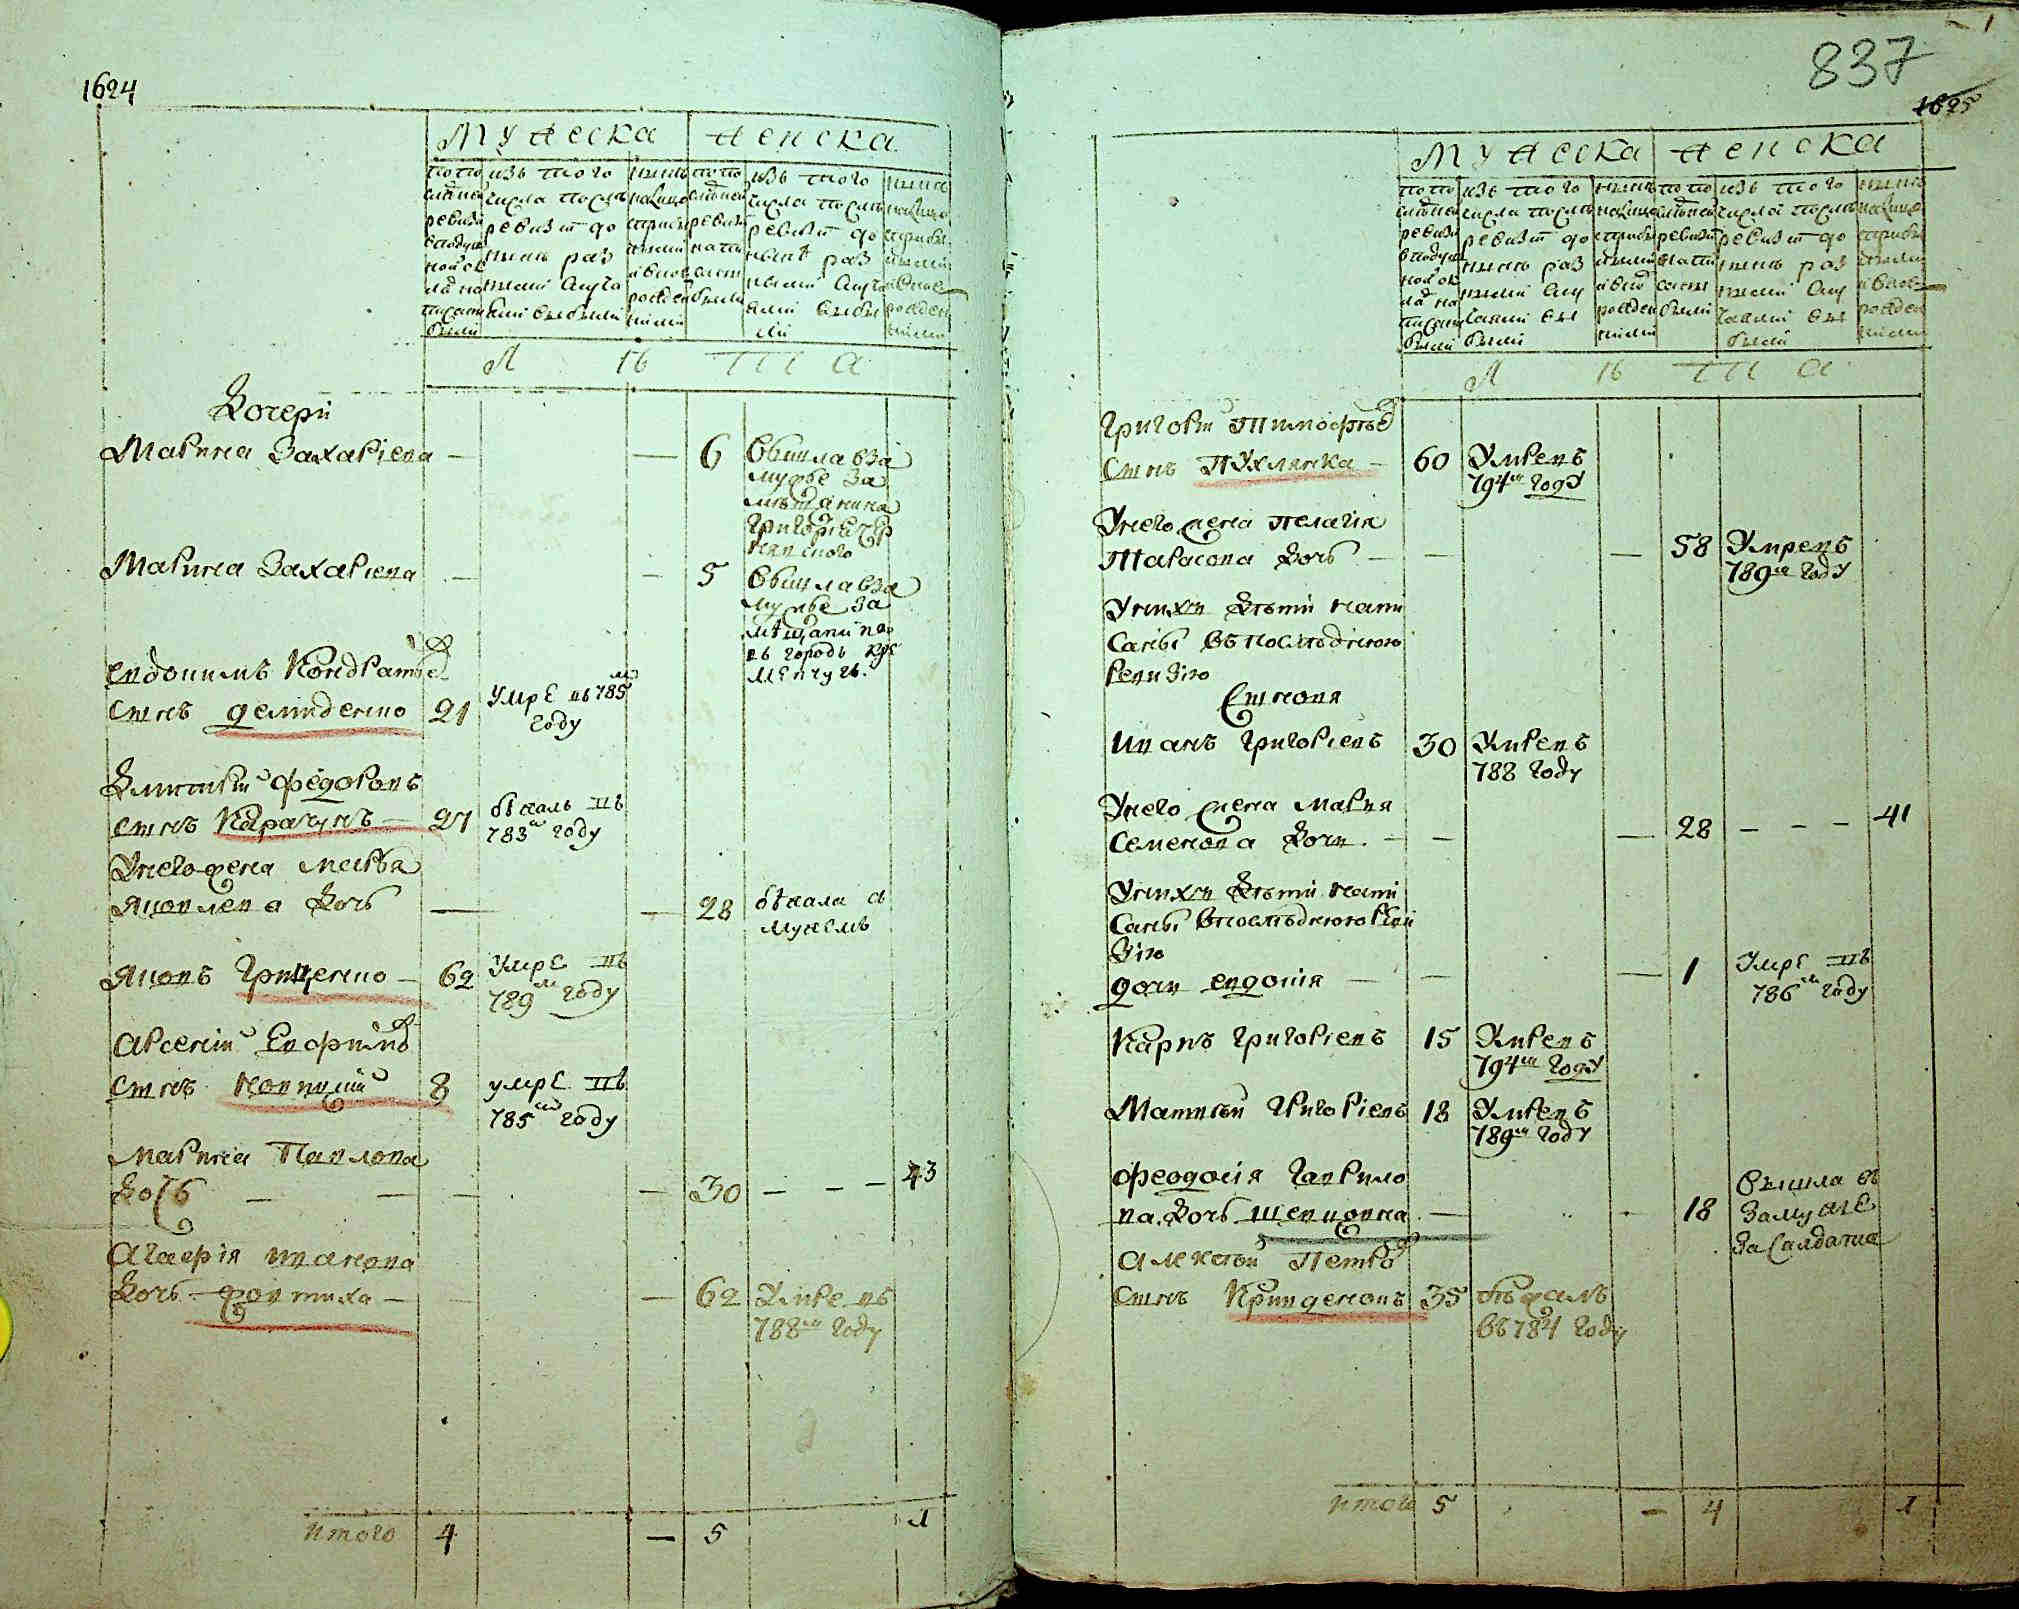 1624
Мужеска
Женска
по по
следней
ревизи
в подуш
ной ок
лад на
писаны
были
изъ того
числа после
ревизiи до
ныне раз
ными случа
ями выбыли
ныне
налицо
с прибы
лыми
и вновь
рожден
ными
по по
следней
ревизи
написаны
были
изъ того
числа после
ревизiи до
ныне раз
ными случа
ями выбы
ли
ныне
налицо
с прибы
лыми
и вновь
рожден
ными
Лѣта
Дочери
Марина Захарiева — — 6 вышла в за
мужье за
мещанина
Григорiя
Марина Захарiева — — 5 вышла в за
мужье за
мещанина
въ городъ Кре
менчугъ.
Евдокимъ Кондратьев
сынъ Демиденко 21 умре въ 785м
году
Дмитрий Федоровъ
сынъ Карачунъ — 27 бежалъ въ
783м году
У него жена Марья
Яковлева дочь — — 28 бежала съ
мужемъ
Яковъ Гриценко — 62 умре въ
789м году
Арсений Ефимов
сынъ 8 умре въ
785м году
Марина Павлова
дочь — — — — 30 — — — 43
Агафiя Иванова
дочь — — — 62 Умре въ
788м году
итого 4 — 5 1
837
1625
Мужеска
Женска
по по
следней
ревизи
в подуш
ной ок
лад на
писаны
были
изъ того
числа после
ревизiи до
ныне раз
ными слу
чаями вы
были
ныне
налицо
с прибы
лыми
и вновь
рожден
ными
по по
следней
ревизи
написаны
были
изъ того
числа после
ревизiи до
ныне раз
ными слу
чаями вы
были
ныне
налицо
с прибы
лыми
и вновь
рожден
ными
Лѣта
Григорий Тимофеев
сынъ Пухлянка — 60 Умре въ
794м году
У него жена Пелагия
Тарасова дочь — — — 58 Умре въ
789м году
У них дети напи
саны въ последнюю
ревизiю
Сыновя
Иванъ Григорiевъ 30 Умре въ
788 году
У него жена Мария
Семенова дочь. — — — 28 — — — 41
У них дети напи
саны в последнюю реви
зiю
дочь Евдокiя — — — 1 Умре въ
786м году
Карпъ Григорiевъ 15 Умре въ
794м году
Матвей Григорiевъ 18 Умре въ
789м году
Феодосiя Гаврило
ва дочь Шевцовна — 18 вышла въ
замуже
за салдата
Алексей Петров
сынъ 35 бежалъ
въ 784 году
итого 5 — 4 1